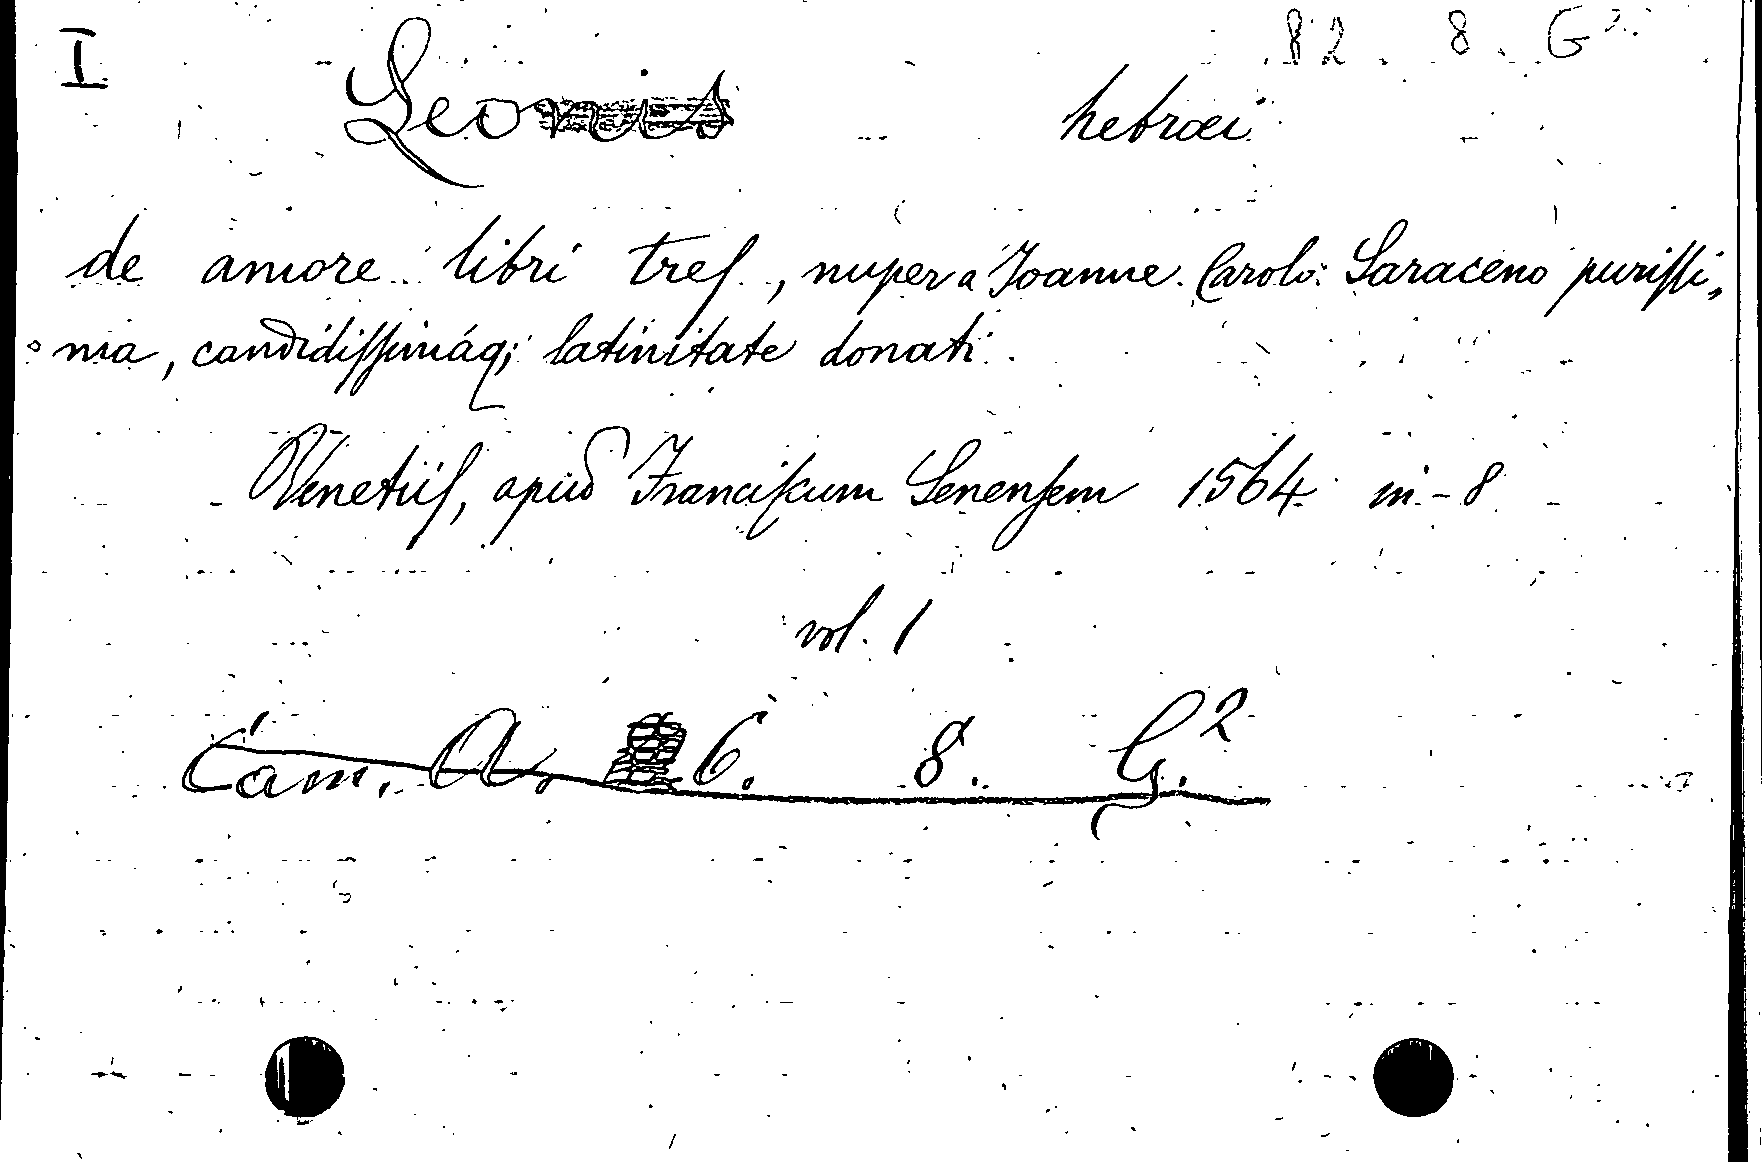 I 82. 8. G²
Leonis hebræi
de amore libri treſ, nuper a Joanne Carolo Saraceno puriſſi„
ma, candidiſſimáq; latinitate donati.
Venetiiſ, apud Franciſcum Senenſem 1564 in-8
vol. 1
Cam. A. 6. 8. G.²